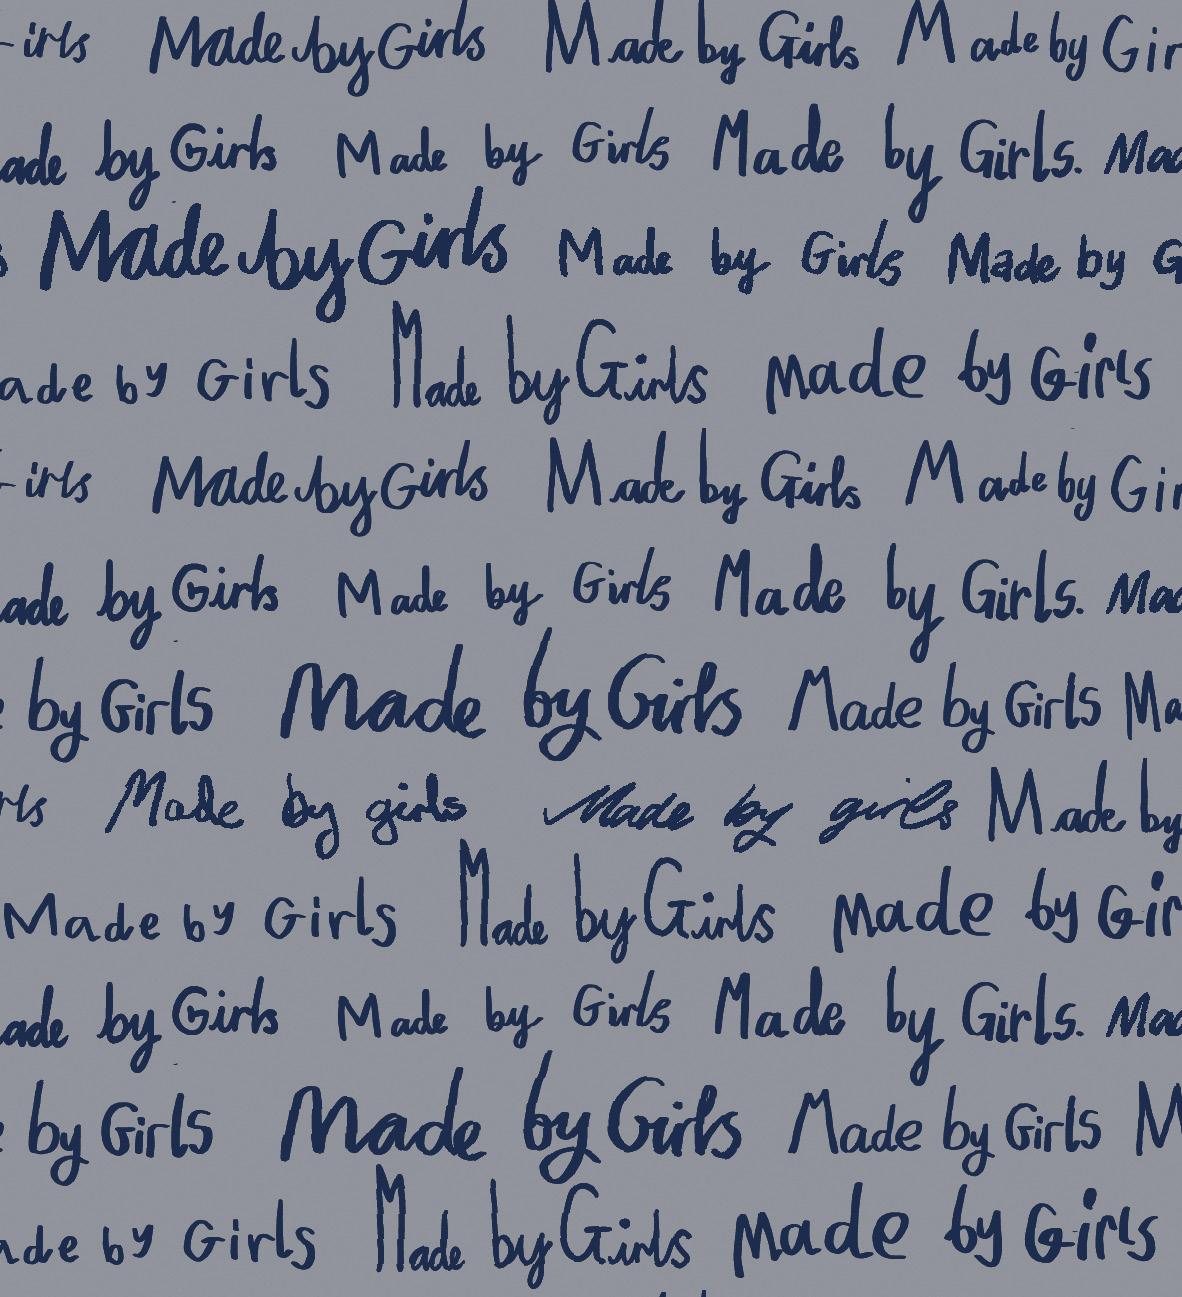 irls Made by Girls Made by Girls Made by Gir
ade by Girls Made by Girls Made by Girls. Mad
s Made by Girls Made by Girls Made by G
ade by Girls Made by Girls Made by Girls
irls Made by Girls Made by Girls Made by Gir
ade by Girls Made by Girls Made by Girls. Mad
e by Girls Made by Girls Made by Girls Ma
rls Made by girls Made by girls Made by
Made by Girls Made by Girls Made by Gir
ade by Girls Made by Girls Made by Girls. Mad
e by Girls Made by Girls Made by Girls M
ade by Girls Made by Girls Made by Girls